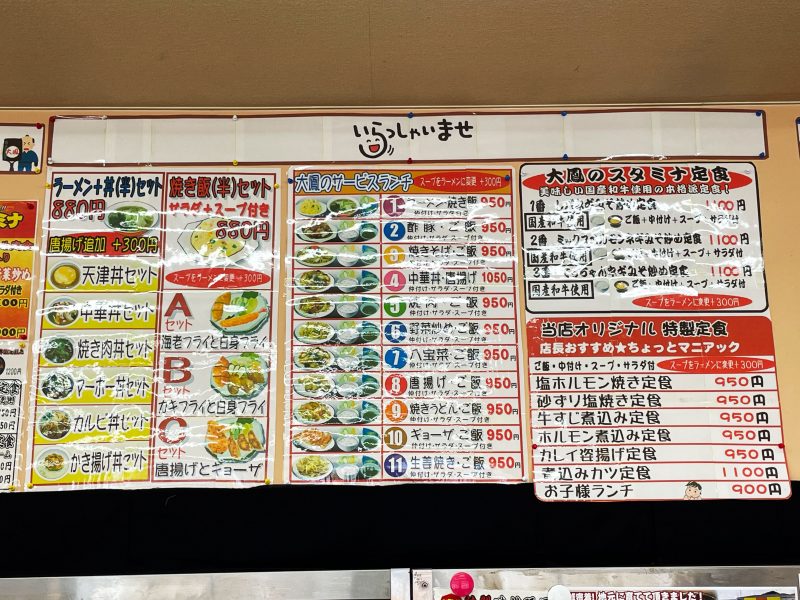 いらっしゃいませ
ラーメン+丼(半)セット
880円
唐揚げ追加 +300円
天津丼セット
中華丼セット
焼き肉丼セット
マーボー丼セット
カルビ丼セット
かき揚げ丼セット
焼き飯(半)セット
サラダ+スープ付き
880円
スープをラーメンに変更 +300円
A
セット
海老フライと白身フライ
B
セット
カキフライと白身フライ
C
セット
唐揚げとギョーザ
大鳳のサービスランチ
スープをラーメンに変更 +300円
1 ラーメン・焼き飯 950円
2 酢豚・ご飯 950円
仲付け・サラダ・スープ付き
3 焼きそば・ご飯 950円
仲付け・サラダ・スープ付き
4 中華丼・唐揚げ 1050円
仲付け・サラダ・スープ付き
5 焼肉・ご飯 950円
仲付け・サラダ・スープ付き
6 野菜炒め・ご飯 950円
仲付け・サラダ・スープ付き
7 八宝菜・ご飯 950円
仲付け・サラダ・スープ付き
8 唐揚げ・ご飯 950円
仲付け・サラダ・スープ付き
9 焼きうどん・ご飯 950円
仲付け・サラダ・スープ付き
10 ギョーザ・ご飯 950円
仲付け・サラダ・スープ付き
11 生姜焼き・ご飯 950円
仲付け・サラダ・スープ付き
大鳳のスタミナ定食
美味しい国産和牛使用の本格派定食!
1番 みそ炒め定食 1100円
国産和牛使用 ご飯+中付け+スープ・サラダ付
2番 ミックスホルモンネギみそ炒め定食 1100円
国産和牛使用 ご飯+中付け+スープ・サラダ付
3番 ネギみそ炒め定食 1100円
国産和牛使用 ご飯+中付け+スープ・サラダ付
スープをラーメンに変更+300円
当店オリジナル 特製定食
店長おすすめ★ちょっとマニアック
ご飯・中付け・スープ・サラダ付 スープをラーメンに変更 +300円
塩ホルモン焼き定食 950円
砂ずり塩焼き定食 950円
牛すじ煮込み定食 950円
ホルモン煮込み定食 950円
カレイ唐揚げ定食 950円
煮込みカツ定食 1100円
お子様ランチ 900円